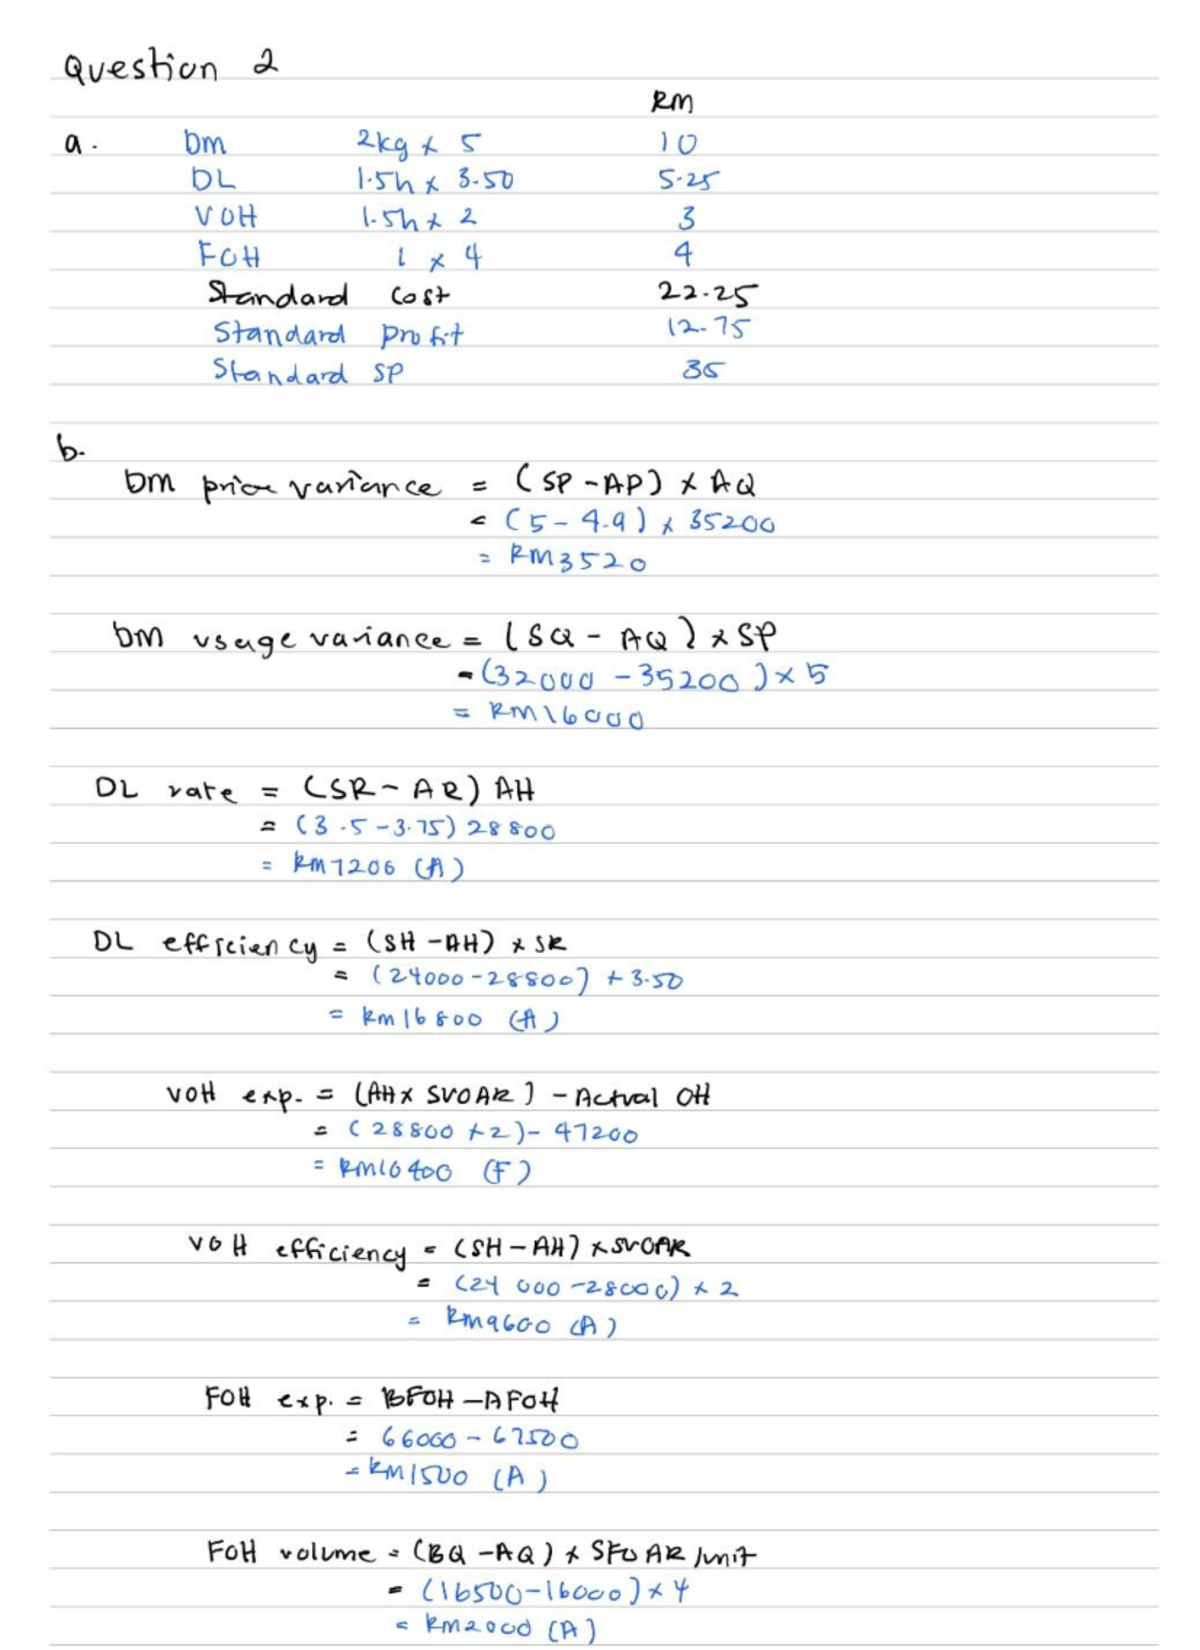 Question 2
RM
a. DM 2kg x 5 10
DL 1.5h x 3.50 5.25
VOH 1.5h x 2 3
FOH 1 x 4 4
Standard cost 22.25
Standard profit 12.75
Standard SP 35
b.
DM price variance = (SP - AP) x AQ
= (5 - 4.9) x 35200
= RM3520
DM usage variance = (SQ - AQ) x SP
= (32000 - 35200) x 5
= RM16000
DL rate = (SR - AR) AH
= (3.5 - 3.75) 28800
= RM7200 (A)
DL efficiency = (SH - AH) x SR
= (24000 - 28800) x 3.50
= RM16800 (A)
VOH exp. = (AH x SVOAR) - Actual OH
= (28800 x 2) - 47200
= RM10400 (F)
VOH efficiency = (SH - AH) x SVOAR
= (24 000 - 28000) x 2
= RM9600 (A)
FOH exp. = BFOH - AFOH
= 66000 - 67500
= RM1500 (A)
FOH volume = (BQ - AQ) x SFOAR/unit
= (16500 - 16000) x 4
= RM2000 (A)